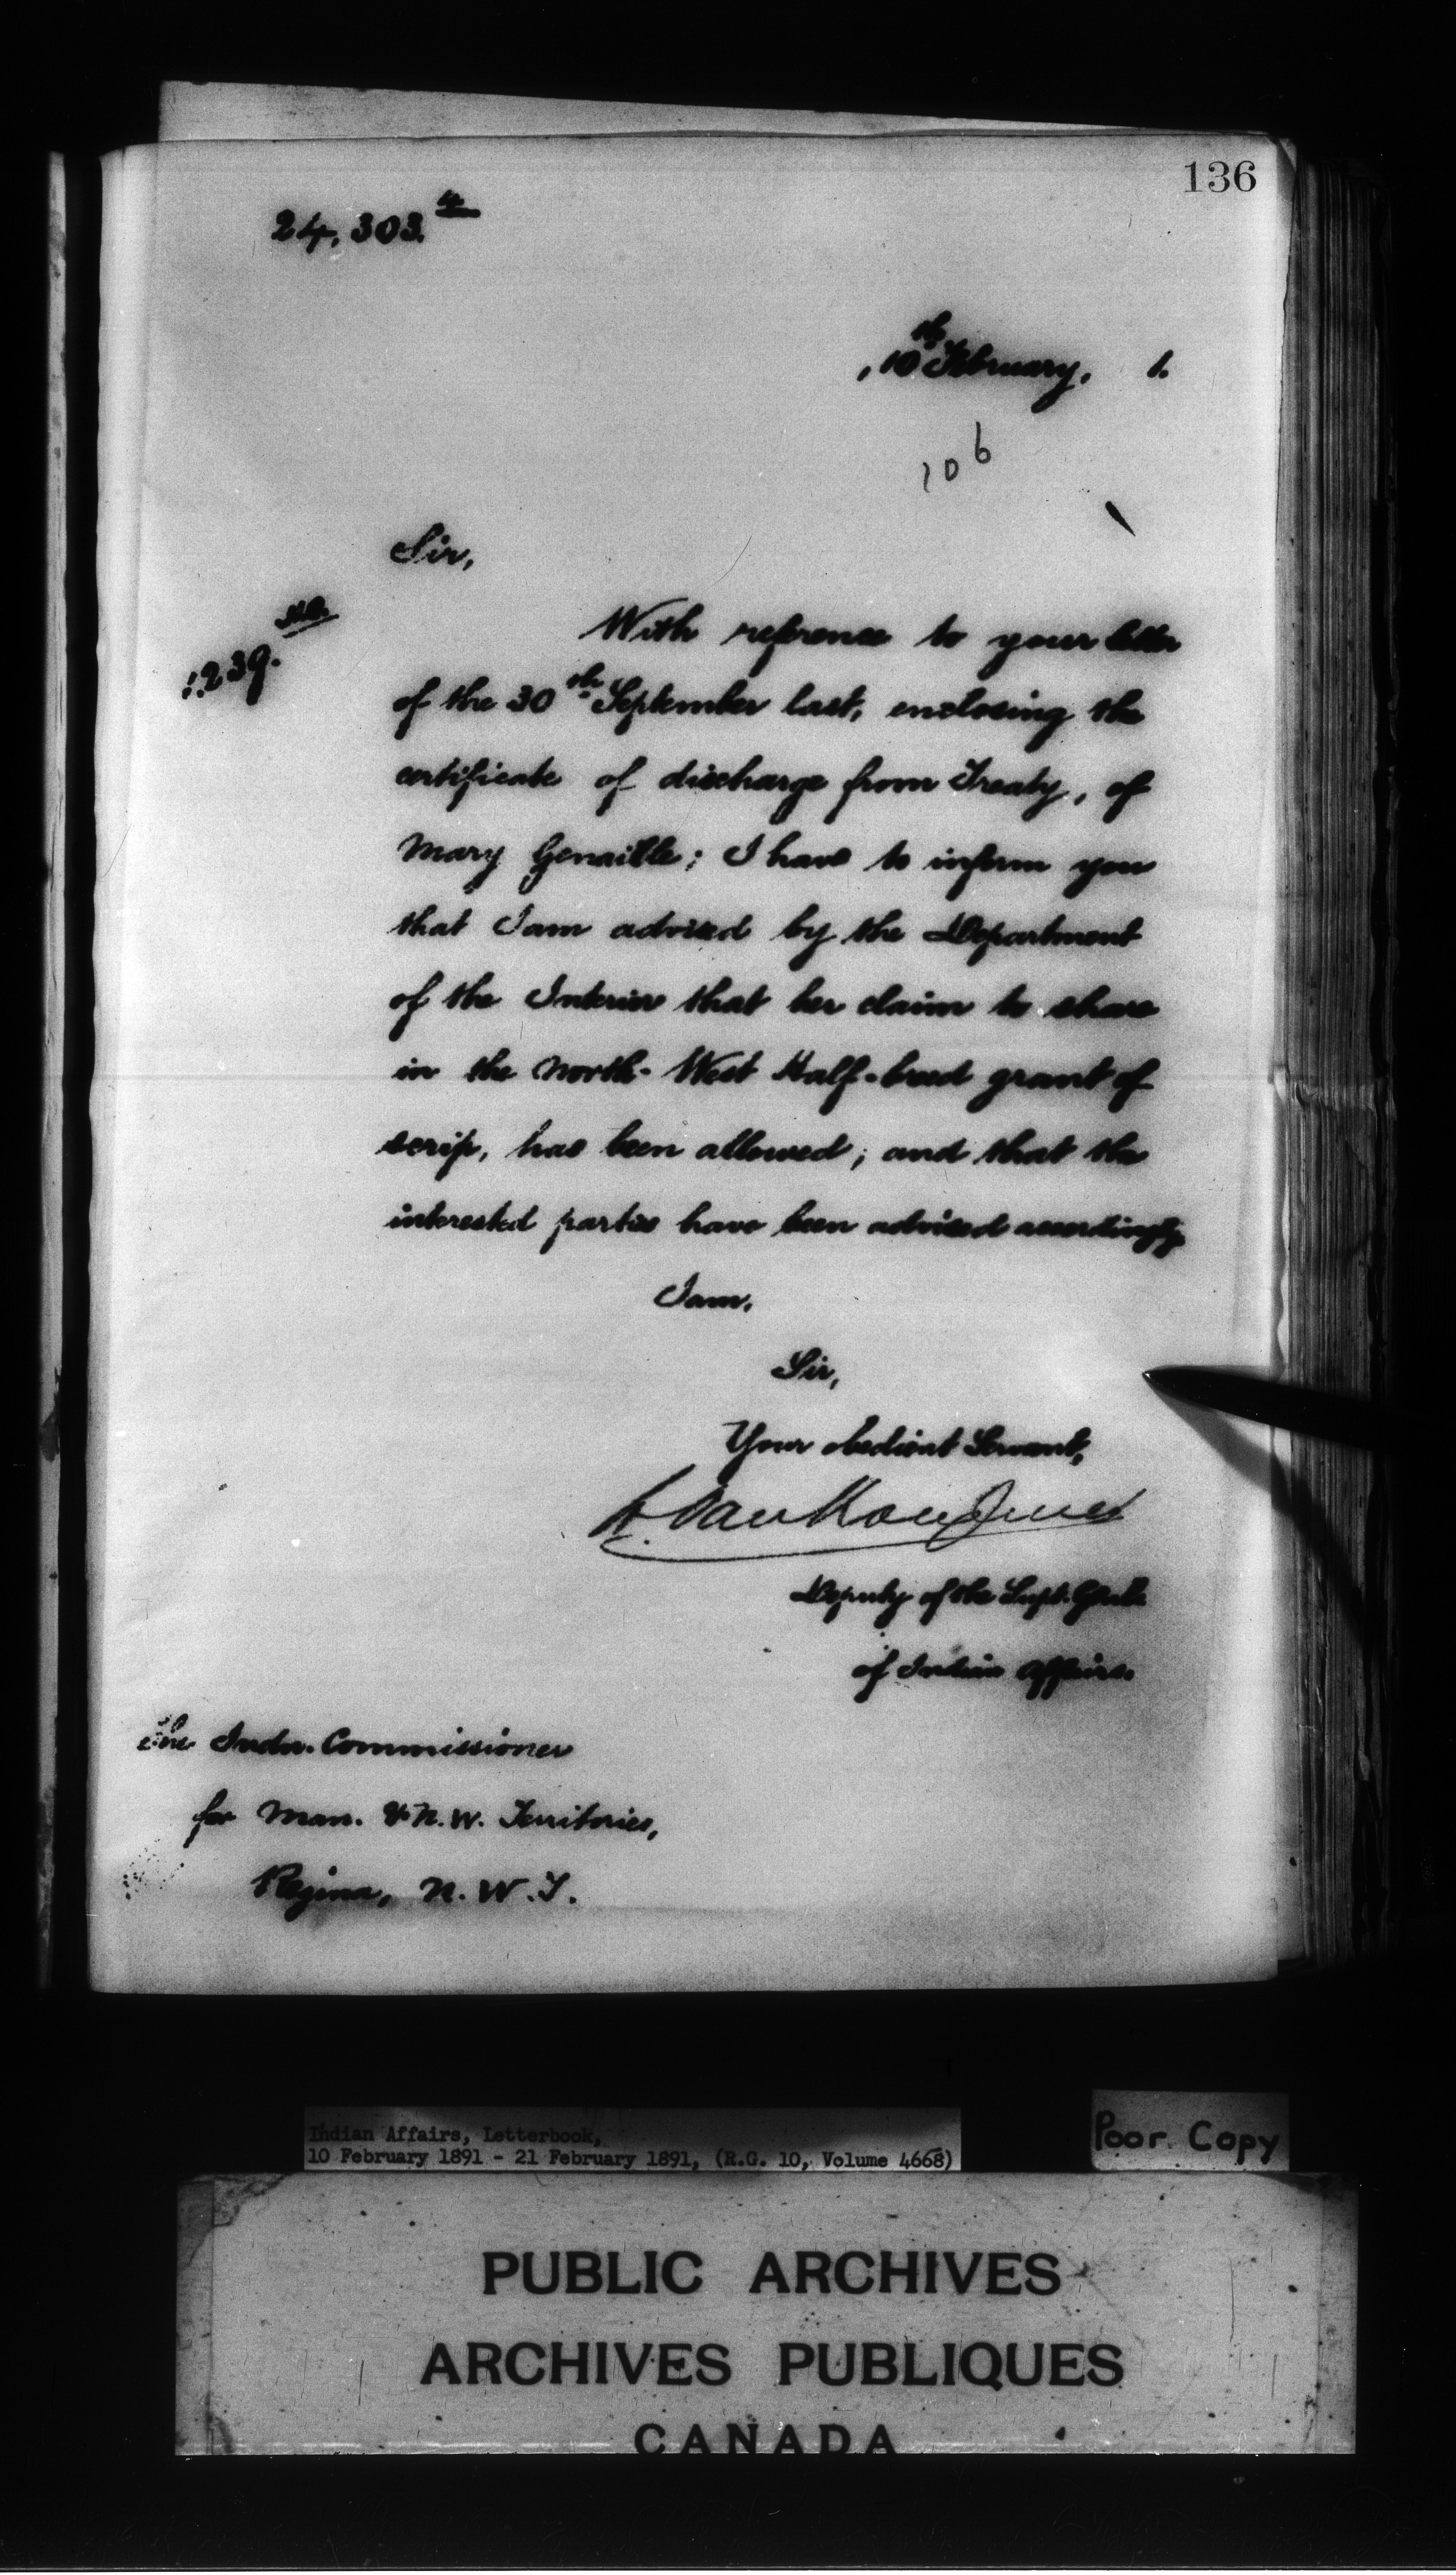 136
24,303.
, 10th February, 1.
106
Sir,
With reference to your letter
239.
of the 30th September last, enclosing the
certificate of discharge from Treaty, of
Mary Genaille; I have to inform you
that I am advised by the Department
of the Interior that her claim to share
in the North-West Half-breed grant of
scrip, has been allowed; and that the
interested parties have been advised accordingly
I am,
Sir,
Your obedient Servant,
L. VanKoughnet
Deputy of the Supt. Genl.
of Indian Affairs.
The Indn. Commissioner
for Man. & N.W. Territories,
Regina, N.W.T.
Indian Affairs, Letterbook,
10 February 1891 - 21 February 1891, (R.G. 10, Volume 4668)
Poor Copy
PUBLIC ARCHIVES
ARCHIVES PUBLIQUES
CANADA